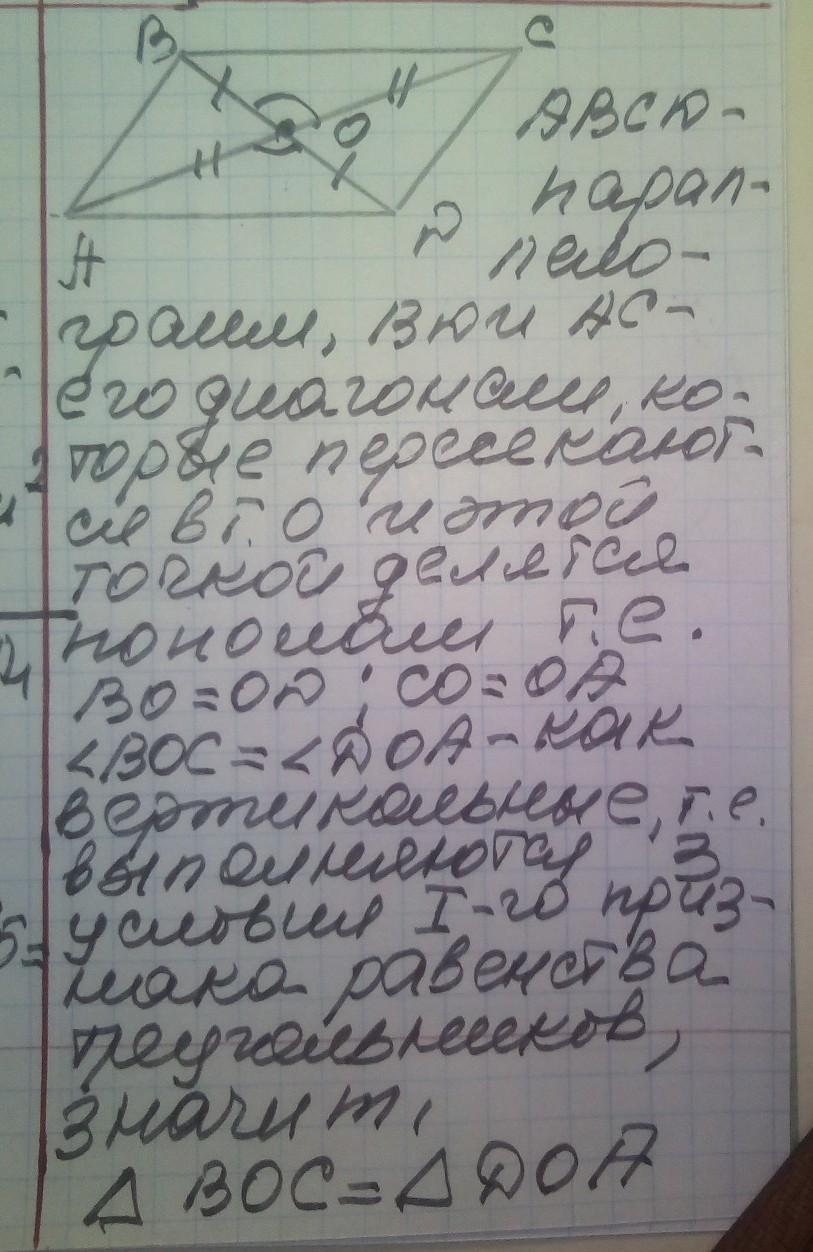 B
C
O
A
D
ABCD -
парал-
лело-
грамм, BD и AC -
его диагонали, ко-
торые пересекают-
ся в т. O и этой
точкой делятся
пополам т.е.
BO = OD ; CO = OA
∠BOC = ∠DOA - как
вертикальные, т.е.
выполняются 3
условия I-го приз-
нака равенства
треугольников,
значит,
Δ BOC = Δ DOA